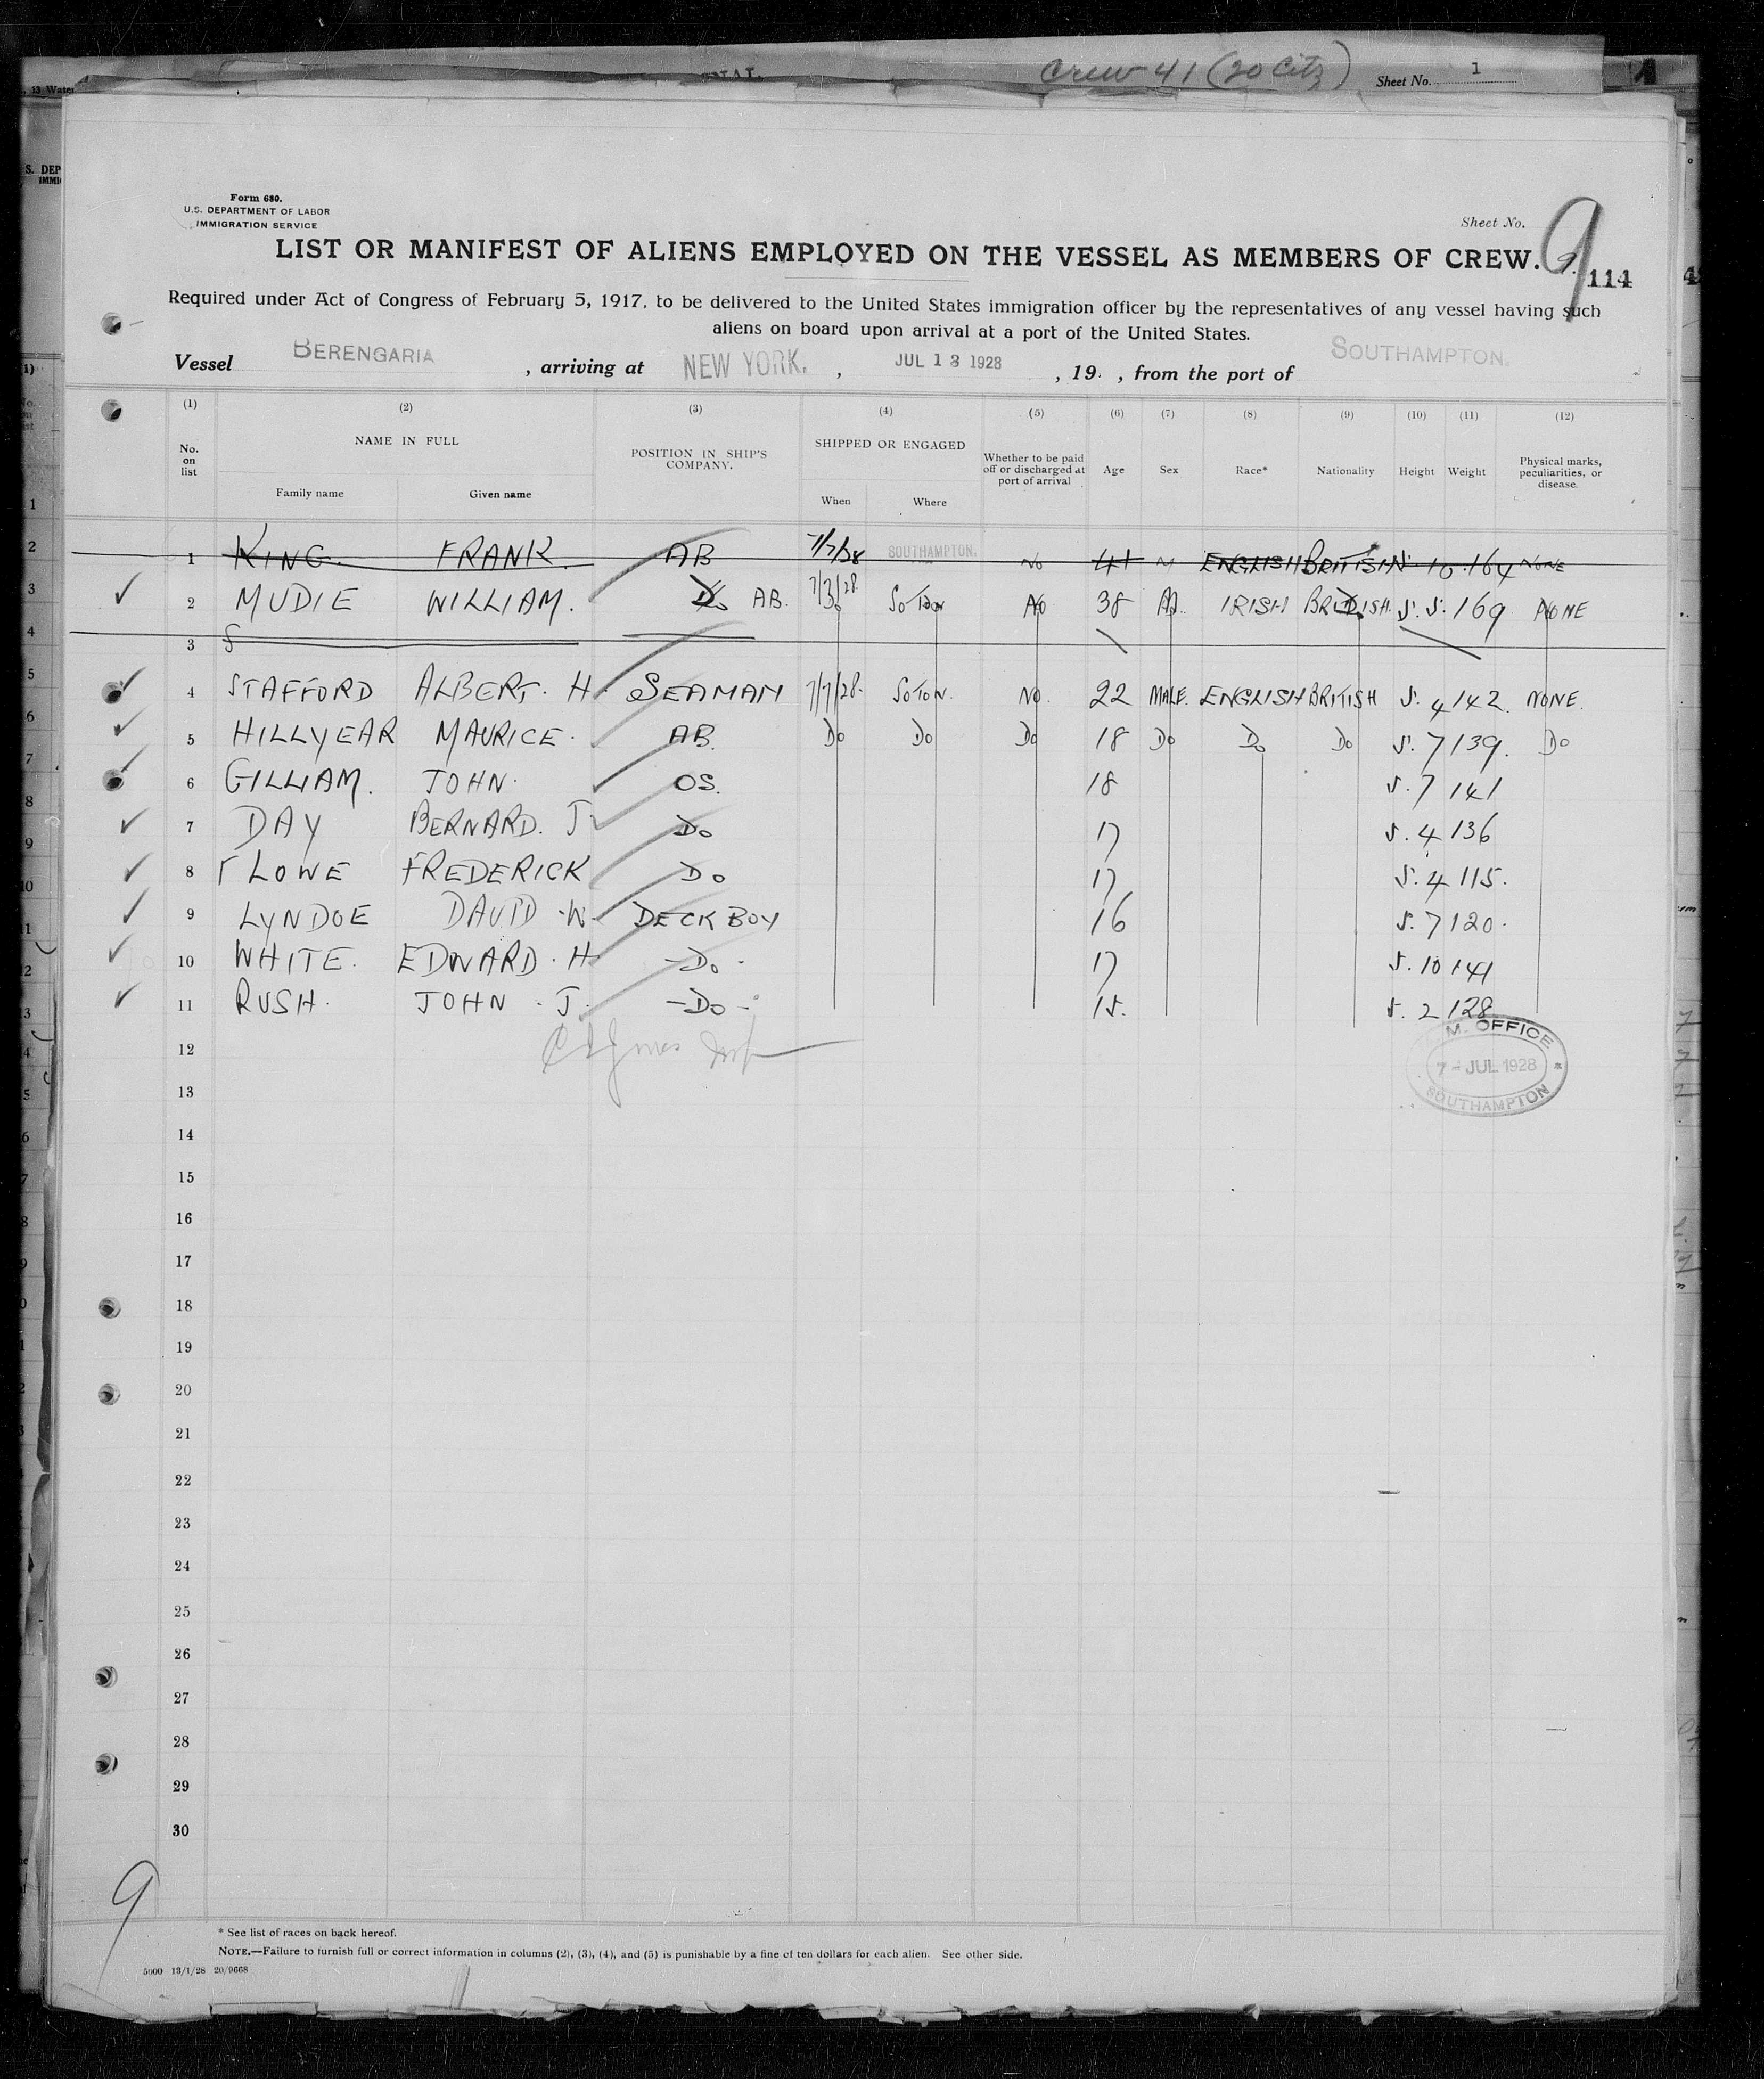 Crew 41 (20 Citz) Sheet No. 1
, 13 Water
S. DEP
IMMI
Form 680.
U.S. DEPARTMENT OF LABOR
IMMIGRATION SERVICE
Sheet No. 9
LIST OR MANIFEST OF ALIENS EMPLOYED ON THE VESSEL AS MEMBERS OF CREW. 9. 114
Required under Act of Congress of February 5, 1917, to be delivered to the United States immigration officer by the representatives of any vessel having such
aliens on board upon arrival at a port of the United States.
Vessel BERENGARIA , arriving at NEW YORK. , JUL 13 1928 , 19 , from the port of SOUTHAMPTON.
(1) (2) (3) (4) (5) (6) (7) (8) (9) (10) (11) (12)
No. on list NAME IN FULL POSITION IN SHIP'S COMPANY. SHIPPED OR ENGAGED Whether to be paid off or discharged at port of arrival Age Sex Race* Nationality Height Weight Physical marks, peculiarities, or disease.
Family name Given name When Where
1 KING. FRANK. AB 7/7/28 SOUTHAMPTON. NO 41 M ENGLISH BRITISH 5. 10. 164 NONE
2 MUDIE WILLIAM. Do AB. 7/7/28. SoToN No 38 M. IRISH BRITISH. 5. 5. 169 NONE
3 S
4 STAFFORD ALBERT. H. SEAMAN 7/7/28. SoToN. NO. 22 MALE. ENGLISH BRITISH 5. 4 142. NONE.
5 HILLYEAR MAURICE. AB. Do Do Do 18 Do Do Do 5. 7 139. Do
6 GILLIAM. JOHN. OS. 18 5. 7 141
7 DAY BERNARD. J Do 17 5. 4 136
8 LOWE FREDERICK Do 17 5. 4 115.
9 LYNDOE DAVID .W. DECK BOY 16 5. 7 120.
10 WHITE. EDWARD. H. -Do- 17 5. 10 141
11 RUSH. JOHN. J. -Do- 15. 5. 2 128
12
M. OFFICE
7 - JUL 1928
SOUTHAMPTON
13
14
15
16
17
18
19
20
21
22
23
24
25
26
27
28
29
30
9
* See list of races on back hereof.
NOTE.—Failure to furnish full or correct information in columns (2), (3), (4), and (5) is punishable by a fine of ten dollars for each alien. See other side.
5000 13/1/28 20/9668